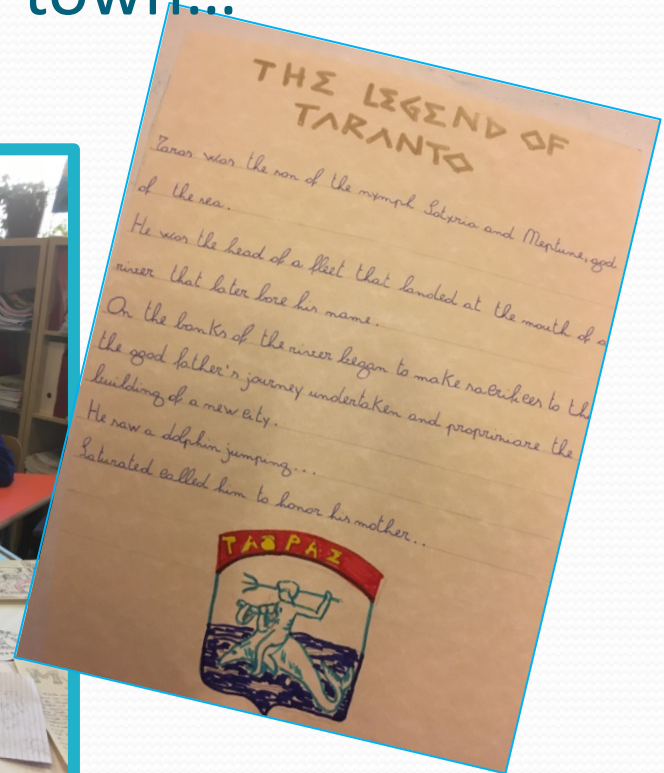 town...
THE LEGEND OF
TARANTO
Taras was the son of the nymph Satyria and Neptune, god
of the sea.
He was the head of a fleet that landed at the mouth of a
river that later bore his name.
On the banks of the river began to make sacrifices to the
the god father's journey undertaken and propriniare the
building of a new city.
He saw a dolphin jumping...
Saturated called him to honor his mother..
ΤΑΣΡΑΣ